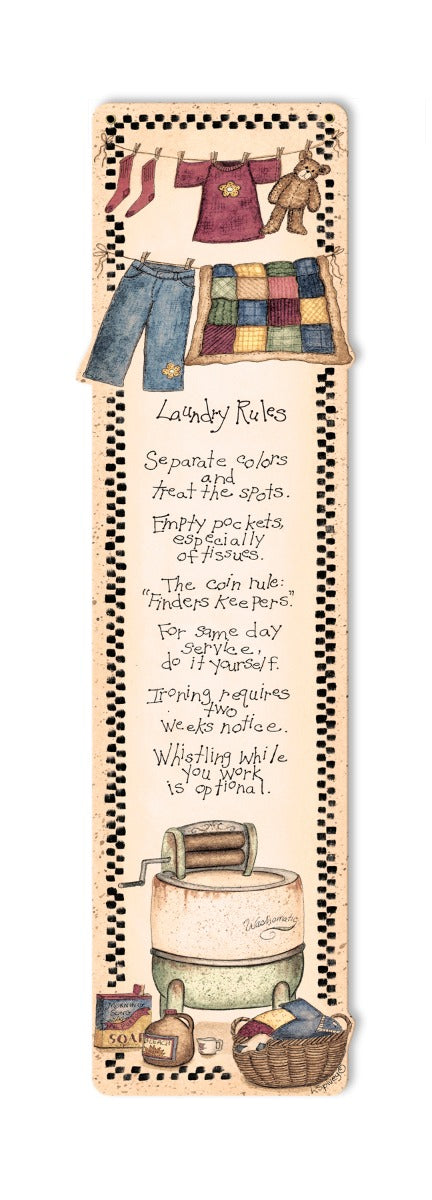 Laundry Rules
Separate colors
and
treat the spots.
Empty pockets,
especially
of tissues.
The coin rule:
"Finders Keepers."
For same day
service,
do it yourself.
Ironing requires
two
weeks notice.
Whistling while
you work
is optional.
Washomatic
SOAP
BLEACH